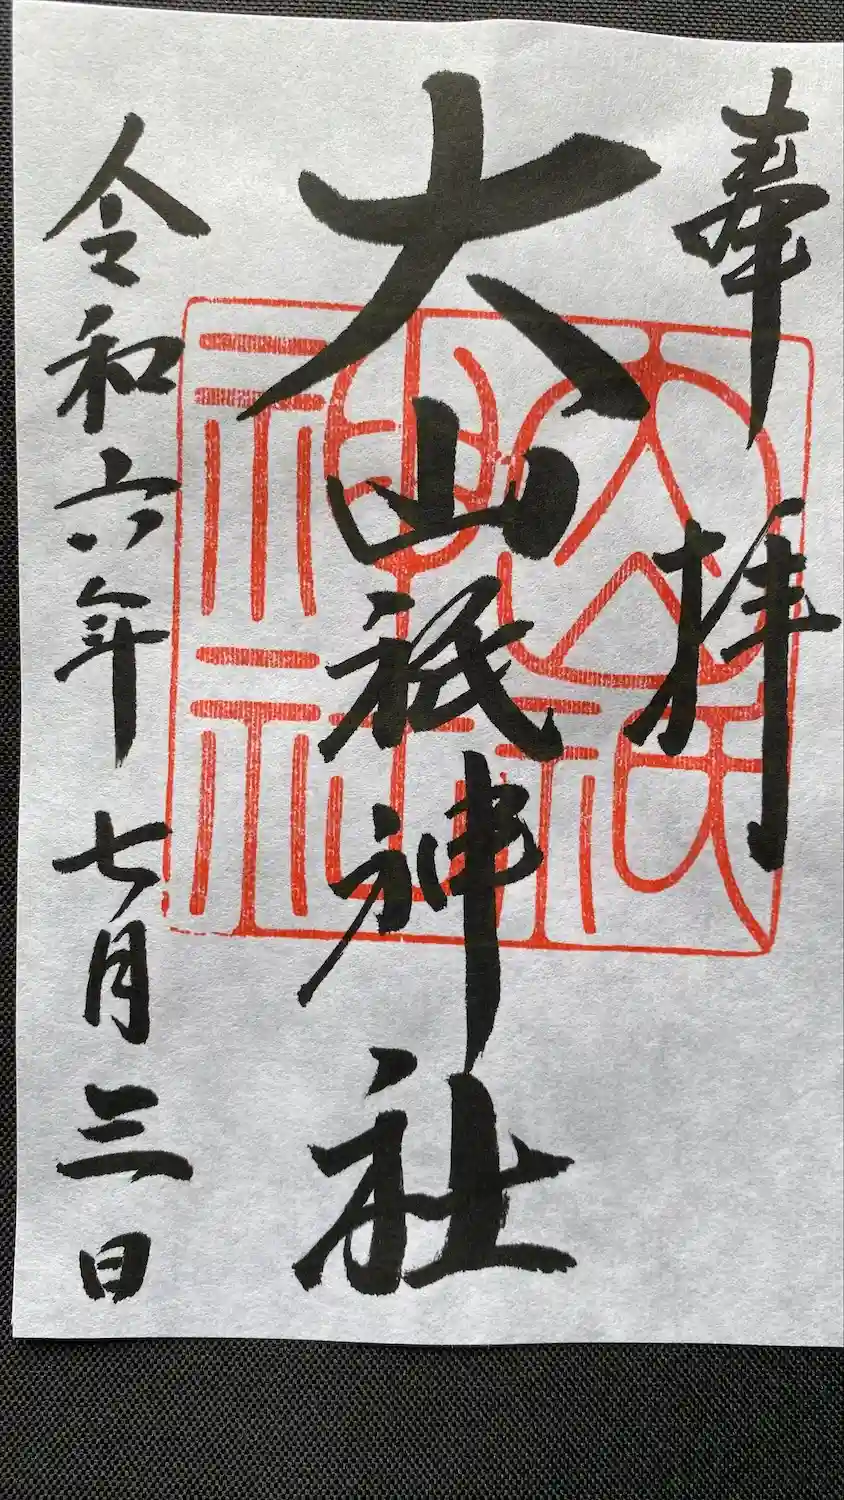 奉拝
大山祇神社
令和六年七月三日
大山祇
神社